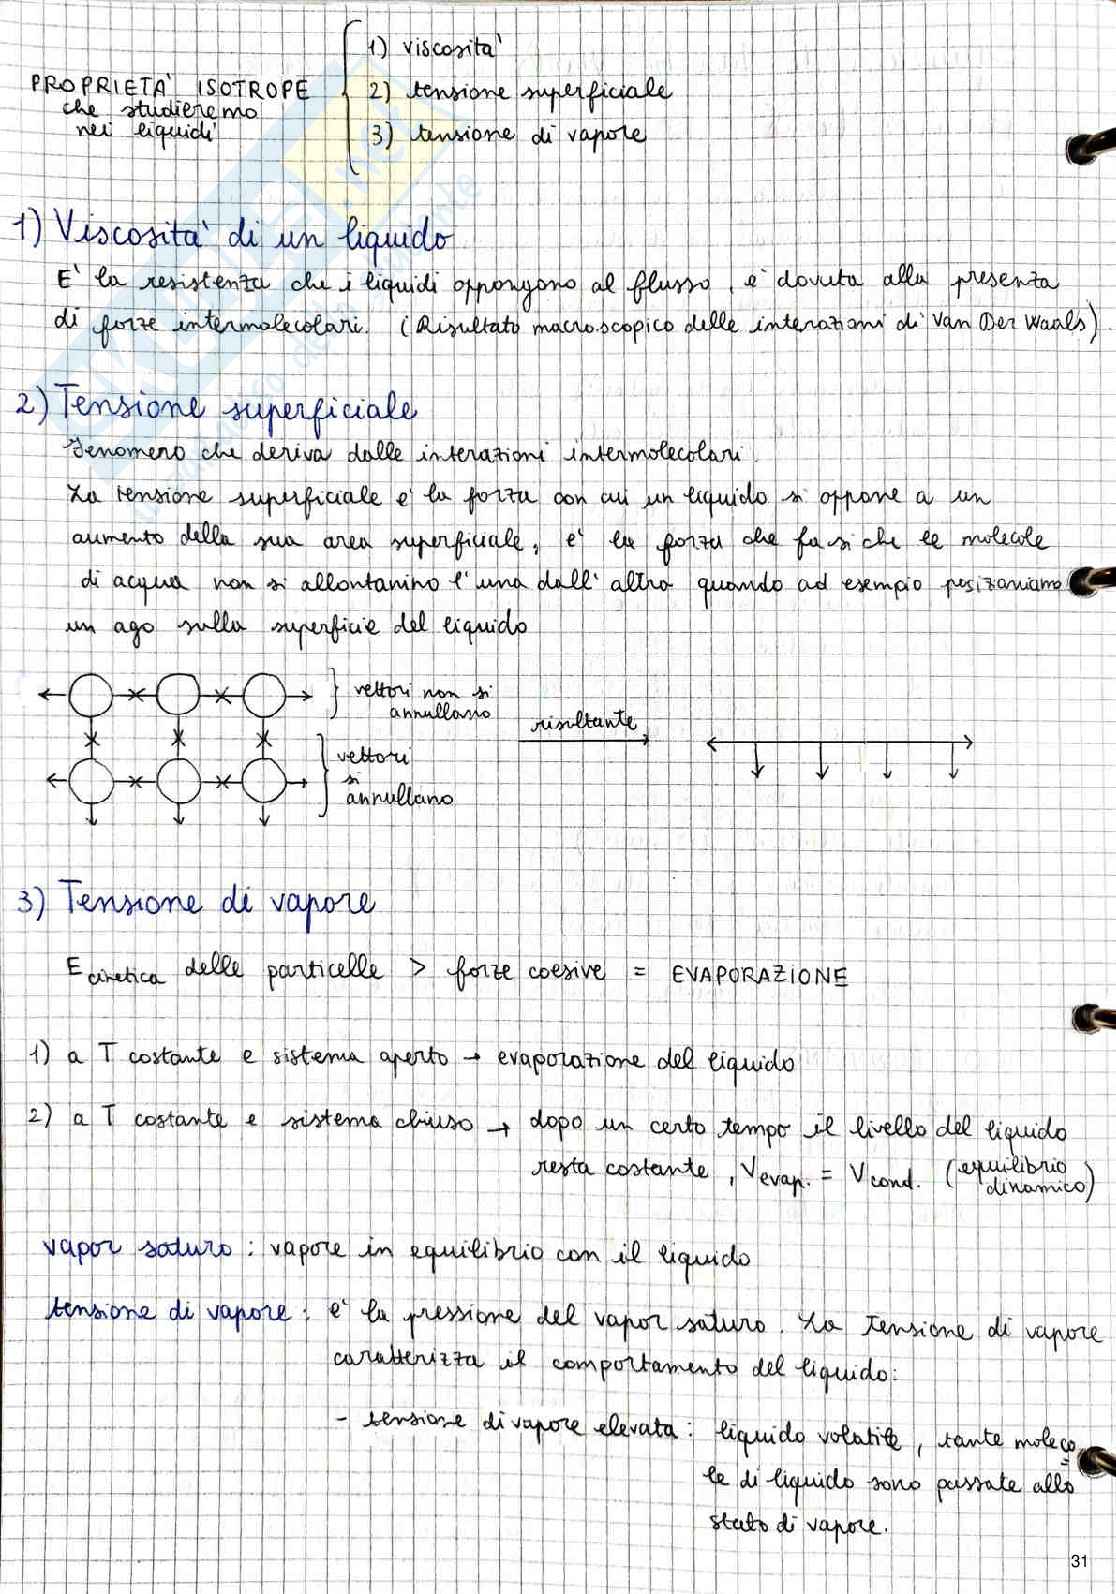 PROPRIETA' ISOTROPE
che studieremo
nei liquidi
1) viscosita'
2) tensione superficiale
3) tensione di vapore
1) Viscosita' di un liquido
E' la resistenza che i liquidi oppongono al flusso, e' dovuta alla presenza
di forze intermolecolari. (Risultato macroscopico delle interazioni di Van Der Waals)
2) Tensione superficiale
Fenomeno che deriva dalle interazioni intermolecolari.
La tensione superficiale e' la forza con cui un liquido si oppone a un
aumento della sua area superficiale, e' la forza che fa si che le molecole
di acqua non si allontanino l'una dall'altra quando ad esempio posizioniamo
un ago sulla superficie del liquido
vettori non si
annullano
vettori
si
annullano
risultante
3) Tensione di vapore
E cinetica delle particelle > forze coesive = EVAPORAZIONE
1) a T costante e sistema aperto → evaporazione del liquido
2) a T costante e sistema chiuso → dopo un certo tempo il livello del liquido
resta costante, Vevap. = Vcond. (equilibrio
dinamico)
vapor saturo: vapore in equilibrio con il liquido
tensione di vapore: e' la pressione del vapor saturo. La tensione di vapore
caratterizza il comportamento del liquido:
- tensione di vapore elevata: liquido volatile, tante moleco
le di liquido sono passate allo
stato di vapore.
31